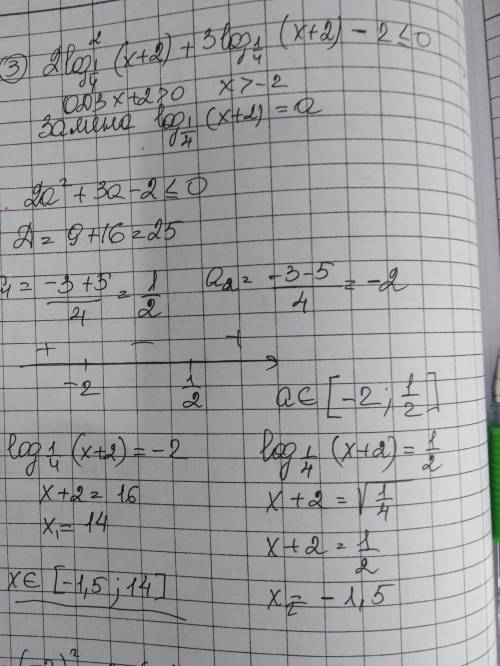 ③ 2log²_{1/4} (x+2) + 3log_{1/4} (x+2) - 2 ≤ 0
ОДЗ x+2>0 x>-2
Замена log_{1/4} (x+2) = a
2a² + 3a - 2 ≤ 0
Д = 9+16 = 25
a₁ = (-3+5)/4 = 1/2 a₂ = (-3-5)/4 = -2
+ - +
-2 1/2
a ∈ [-2; 1/2]
log_{1/4} (x+2) = -2
x+2 = 16
x₁ = 14
log_{1/4} (x+2) = 1/2
x+2 = √(1/4)
x+2 = 1/2
x₂ = -1,5
x ∈ [-1,5; 14]